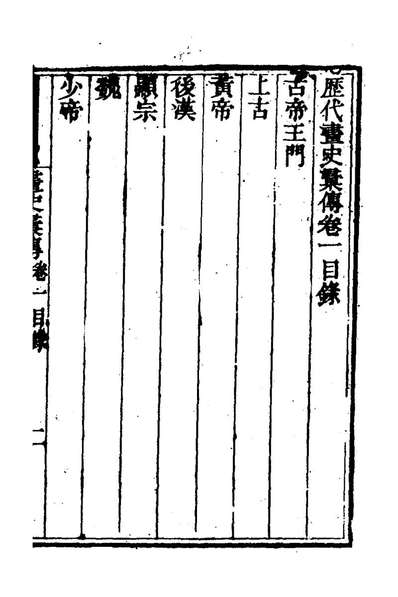 歷代畫史彙傳卷一目錄
古帝王門
上古
黃帝
後漢
顯宗
魏
少帝
畫史彙傳卷一目錄